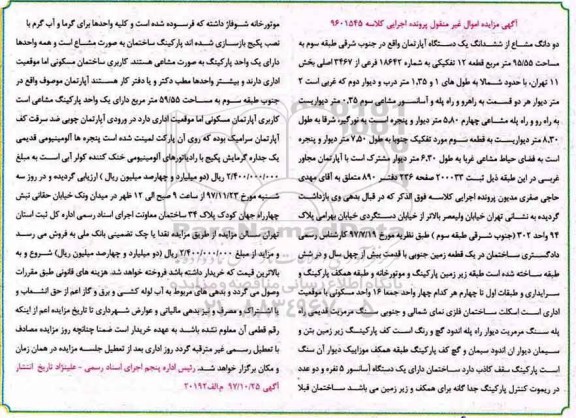 آگهی مزایده اموال غیر منقول پرونده اجرایی کلاسه ۹۶۰۱۵۴۵
دو دانگ مشاع از ششدانگ یک دستگاه آپارتمان واقع در جنوب شرقی طبقه سوم به
مساحت ۹۵/۵۵ متر مربع قطعه ۱۲ تفکیکی به شماره ۱۸۶۴۲ فرعی از ۳۴۶۷ اصلی بخش
۱۱ تهران، با حدود شمالا به طول های ۱ و ۱،۳۵ متر درب و دیوار دوم که غربی است ۲
متر دیوار هر دو قسمت به راهرو و راه پله و آسانسور مشاعی سوم ۰،۳۵ متر دیواریست
به راه رو و راه پله مشاعی چهارم ۵،۸۰ متر دیوار و پنجره است به نورگیر، شرقا به طول
۸،۳۰ متر دیواریست به قطعه سوم مورد تفکیک جنوبا به طول ۷،۵۰ متر دیوار و پنجره
است به فضای حیاط مشاعی غربا به طول ۶،۳۰ متر دیوار مشترک است با آپارتمان مجاور
غربی در این طبقه ذیل ثبت ۲۰۰۰۳۳ صفحه ۲۳۶ دفتر ۸۹۰ متعلق به آقای مهدی
حاجی صفری مدیون پرونده اجرایی کلاسه فوق الذکر که در قبال بدهی وی بازداشت
گردیده به نشانی تهران خیابان ولیعصر بالاتر از خیابان دستگردی خیابان بهرامی پلاک
۹۴ واحد ۳۰۲ (جنوب شرقی طبقه سوم ) طبق نظریه مورخ ۹۷/۷/۱۹ کارشناس رسمی
دادگستری ساختمان در یک قطعه زمین جنوبی با قدمت بیش از چهل سال و در شش
طبقه ساخته شده است طبقه زیر زمین پارکینگ و موتورخانه و طبقه همکف پارکینگ و
سرایداری و طبقات اول تا چهارم هر کدام چهار واحد جمعا ۱۶ واحد مسکونی با موقعیت
اداری است اسکلت ساختمان فلزی نمای شمالی و جنوبی سنگ مرمریت قدیمی راه
پله سنگ مرمریت دیوار راه پله اندود گچ و رنگ است کف پارکینگ زیر زمین بتن و
سیمان دیوار ان اندود سیمان و گچ کف پارکینگ طبقه همکف موزاییک دیوار آن سنگ
است پارکینگ سقف کاذب دارد ساختمان دارای یک دستگاه آسانسور ۵ نفره و دو عدد
در ریموت کنترل پارکینگ جدا گانه برای همکف و زیر زمین می باشد ساختمان قبلا
موتورخانه شوفاژ داشته که فرسوده شده است و کلیه واحدها برای گرما و آب گرم با
نصب پکیج بازسازی شده اند پارکینگ ساختمان به صورت مشاع است و همه واحدها
دارای یک واحد پارکینگ به صورت مشاعی هستند. کاربری ساختمان مسکونی اما موقعیت
اداری دارند و بیشتر واحدها مطب دکتر و یا دفتر کار هستند آپارتمان موصوف واقع در
جنوب طبقه سوم به مساحت ۵۹/۵۵ متر مربع دارای یک واحد پارکینگ مشاعی است
کاربری آپارتمان مسکونی اما موقعیت اداری دارد در ورودی آپارتمان چوبی ضد سرقت کف
آپارتمان سرامیک بوده که روی آن پارکت لمینت شده است پنجره ها آلومینیومی قدیمی
یک جداره گرمایش پکیج با رادیاتورهای آلومینیومی خنک کننده کولر آبی است به مبلغ
۲/۴۰۰/۰۰۰/۰۰۰ ریال (دو میلیارد و چهارصد میلیون ریال ) ارزیابی گردیده و در روز سه
شنبه مورخ ۹۷/۱۱/۲۳ از ساعت ۹ صبح الی ۱۲ ظهر در میدان ونک خیابان حقانی نبش
چهارراه جهان کودک پلاک ۳۴ ساختمان معاونت اجرای اسناد رسمی اداره کل ثبت استان
تهران سالن مزایده از طریق مزایده نقدا یا چک تضمینی بانک ملی به فروش می رسد
و مزایده از مبلغ ۲/۴۰۰/۰۰۰/۰۰۰ ریال (دو میلیارد و چهارصد میلیون ریال) شروع و به
بالاترین قیمت که خریدار داشته باشد فروخته خواهد شد. هزینه های قانونی طبق مقررات
وصول می گردد و بدهی های مربوطه به آب لوله کشی و برق و گاز اعم از حق انشعاب و
یا اشتراک و مصرف و نیز بدهی مالیاتی و عوارض شهرداری تا تاریخ مزایده اعم از اینکه
رقم قطعی آن معلوم شده باشد به عهده خریدار است ضمنا چنانچه روز مزایده مصادف
با تعطیل رسمی غیر مترقبه گردد روز اداری بعد از تعطیل جلسه مزایده در همان زمان
و مکان برگزار خواهد شد. رئیس اداره پنجم اجرای اسناد رسمی - علینژاد تاریخ انتشار
آگهی ۹۷/۱۰/۲۵ م.الف ۲۰۱۹۲